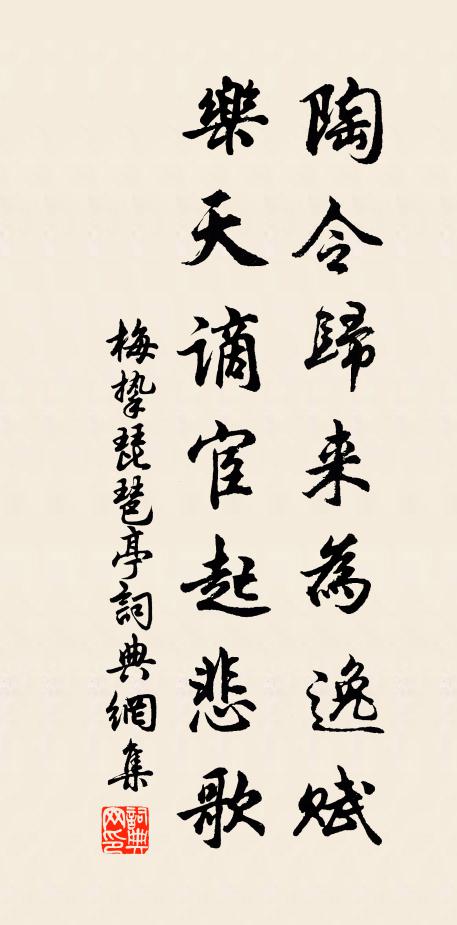 陶令歸来為逸賦
樂天謫宦起悲歌
梅摯琵琶亭詞典網集
詞典网印